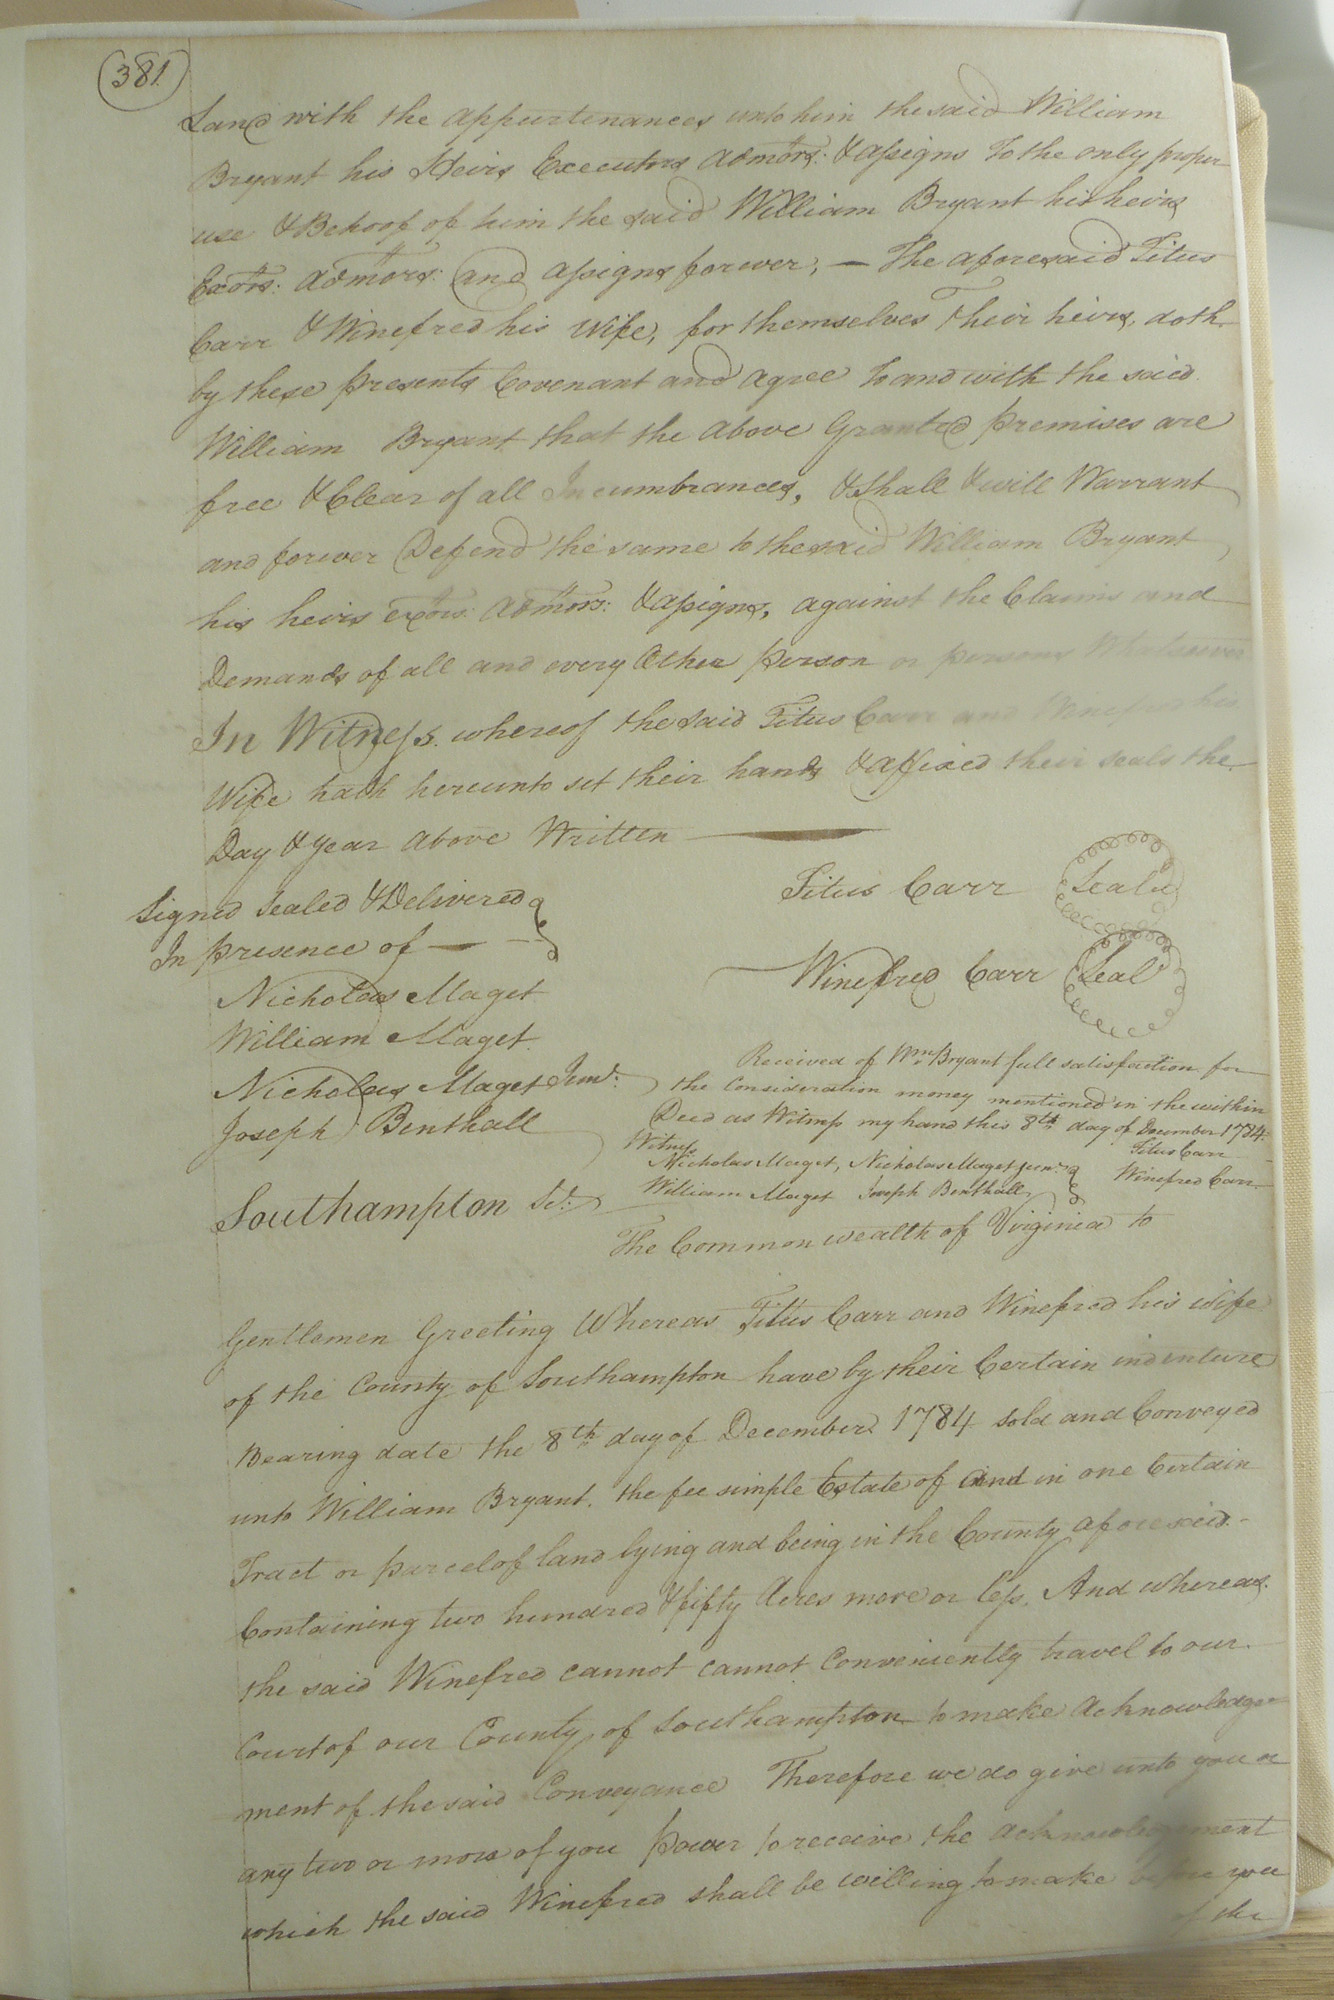 381
Land with the appurtenances unto him the said William
Bryant his Heirs Executors admors: & assigns To the only proper
use & Behoof of him the said William Bryant his heirs
Exors: admors: and assigns forever, — The aforesaid Titus
Carr & Winefred his Wife, for themselves Their heirs, doth
by these presents Covenant and agree to and with the said
William Bryant that the above Granted premises are
free & Clear of all Incumbrances, & Shall & will Warrant
and forever Defend the same to the said William Bryant
his heirs exors: admors: & assigns, against the Claims and
Demands of all and every Other person or persons Whatsoever
In Witness whereof the said Titus Carr and Winefred his
Wife hath hereunto set their hands & affixed their seals the
Day & year above Written
Signed Sealed & Delivered
In presence of —
Titus Carr Seal
Winefred Carr Seal
Nicholas Maget
William Maget
Nicholas Maget Junr:
Joseph Benthall
Received of Wm Bryant full satisfaction for
the Consideration money mentioned in the within
Deed as Witness my hand this 8th day of December 1784
Witness
Titus Carr
Nicholas Maget, Nicholas Maget junr:
Winefred Carr
William Maget Joseph Benthall
Southampton Sct:
The Common wealth of Virginia to
Gentlemen Greeting Whereas Titus Carr and Winefred his wife
of the County of Southampton have by their Certain indenture
Bearing date the 8th day of December 1784 sold and Conveyed
unto William Bryant. the fee simple Estate of and in one Certain
Tract or parcel of land lying and being in the County aforesaid
Containing two hundred & fifty Acres more or less. And whereas
the said Winefred cannot cannot Conveniently travel to our
Court of our County of Southampton to make Acknowledge
ment of the said Conveyance Therefore we do give unto you or
any two or more of you power to receive the acknowledgement
which the said Winefred shall be willing to make before you
of the